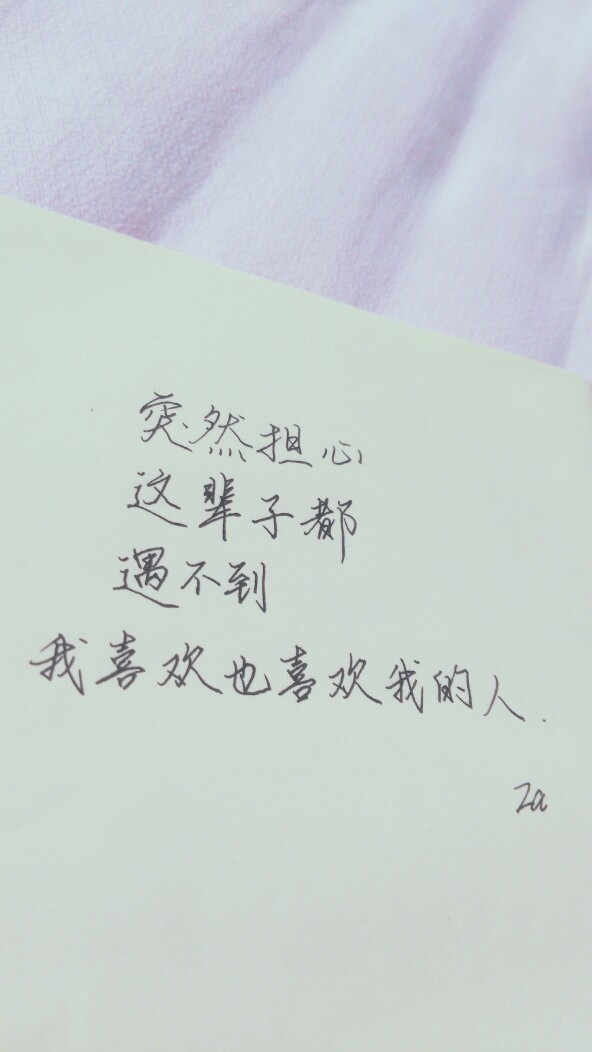 突然担心
这辈子都
遇不到
我喜欢也喜欢我的人.
Za